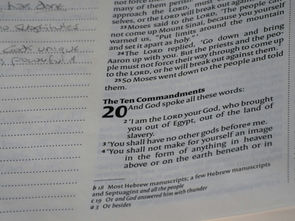 has done.
God's unique
approach the LORD, must
selves, or the LORD will break out against
Moses said to the LORD, "The people can
not come up Mount Sinai, because you
warned us, 'Put limits around the mountain
and set it apart as holy.'"
24 The LORD replied, "Go down and bring
Aaron up with you. But the priests and the peo-
ple must not force their way through to come up
to the LORD, or he will break out against them."
25 So Moses went down to the people and told
them.
The Ten Commandments
20 And God spoke all these words:
2 "I am the LORD your God, who brought
you out of Egypt, out of the land of
slavery.
3 "You shall have no other gods before me.
4 "You shall not make for yourself an image
in the form of anything in heaven
above or on the earth beneath or in
b 18 Most Hebrew manuscripts; a few Hebrew manuscripts
and Septuagint and all the people
c 19 Or and God answered him with thunder
Or besides